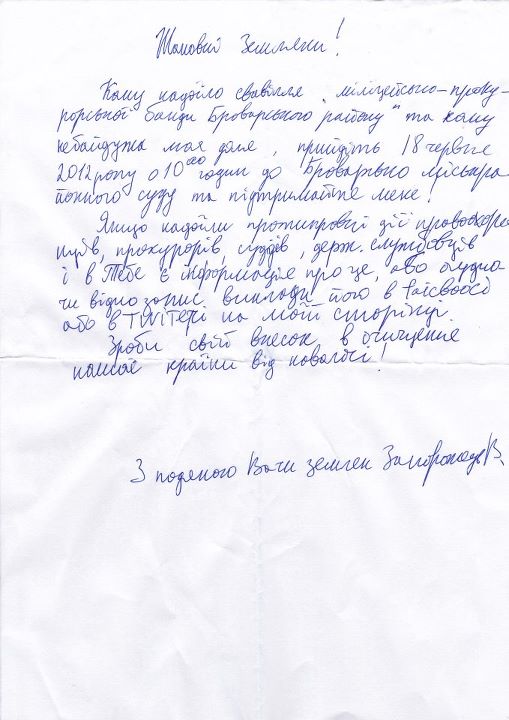 Шановні Земляки!
Кому надоїло свавілля "міліцейсько-проку-
рорської банди Броварського району" та кому
небайдужа моя доля, прийдіть 18 червня
2012 року о 10 00 годин до Броварського міськра
йонного суду та підтримайте мене!
Якщо надоїли протиправні дії правоохоро
нців, прокурорів, суддів, держ. службовців
і в Тебе є інформація про це, або аудіо
чи відео запис. викладу його в Facebooci
або в TWITEPi на моїй сторінці.
Зроби свій внесок в очищення
нашої країни від наволочі!
З подякою Ваш земляк В.